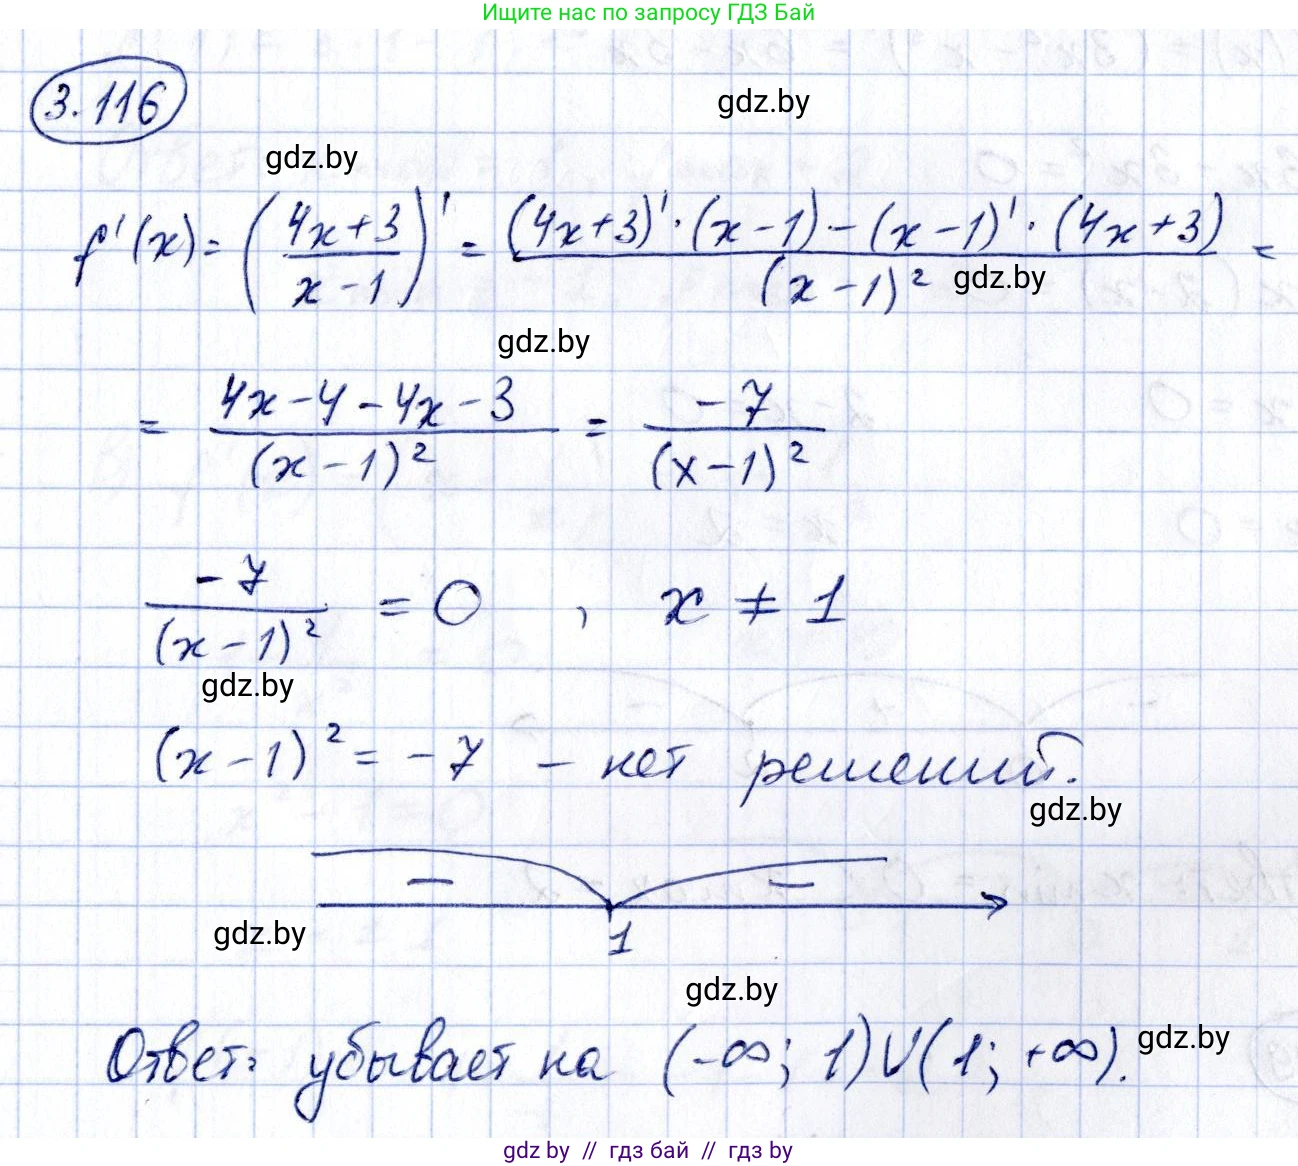 Ищите нас по запросу ГДЗ Бай
3.116
gdz.by
gdz.by
f'(x) = ((4x+3)/(x-1))' = ((4x+3)'·(x-1)-(x-1)'·(4x+3))/(x-1)² =
gdz.by
gdz.by
= (4x-4-4x-3)/(x-1)² = -7/(x-1)²
-7/(x-1)² = 0 , x ≠ 1
gdz.by
(x-1)² = -7 – нет решений.
gdz.by
– –
1
gdz.by
gdz.by
Ответ: убывает на (-∞; 1)∪(1; +∞).
gdz.by
gdz by // гдз бай // гдз by